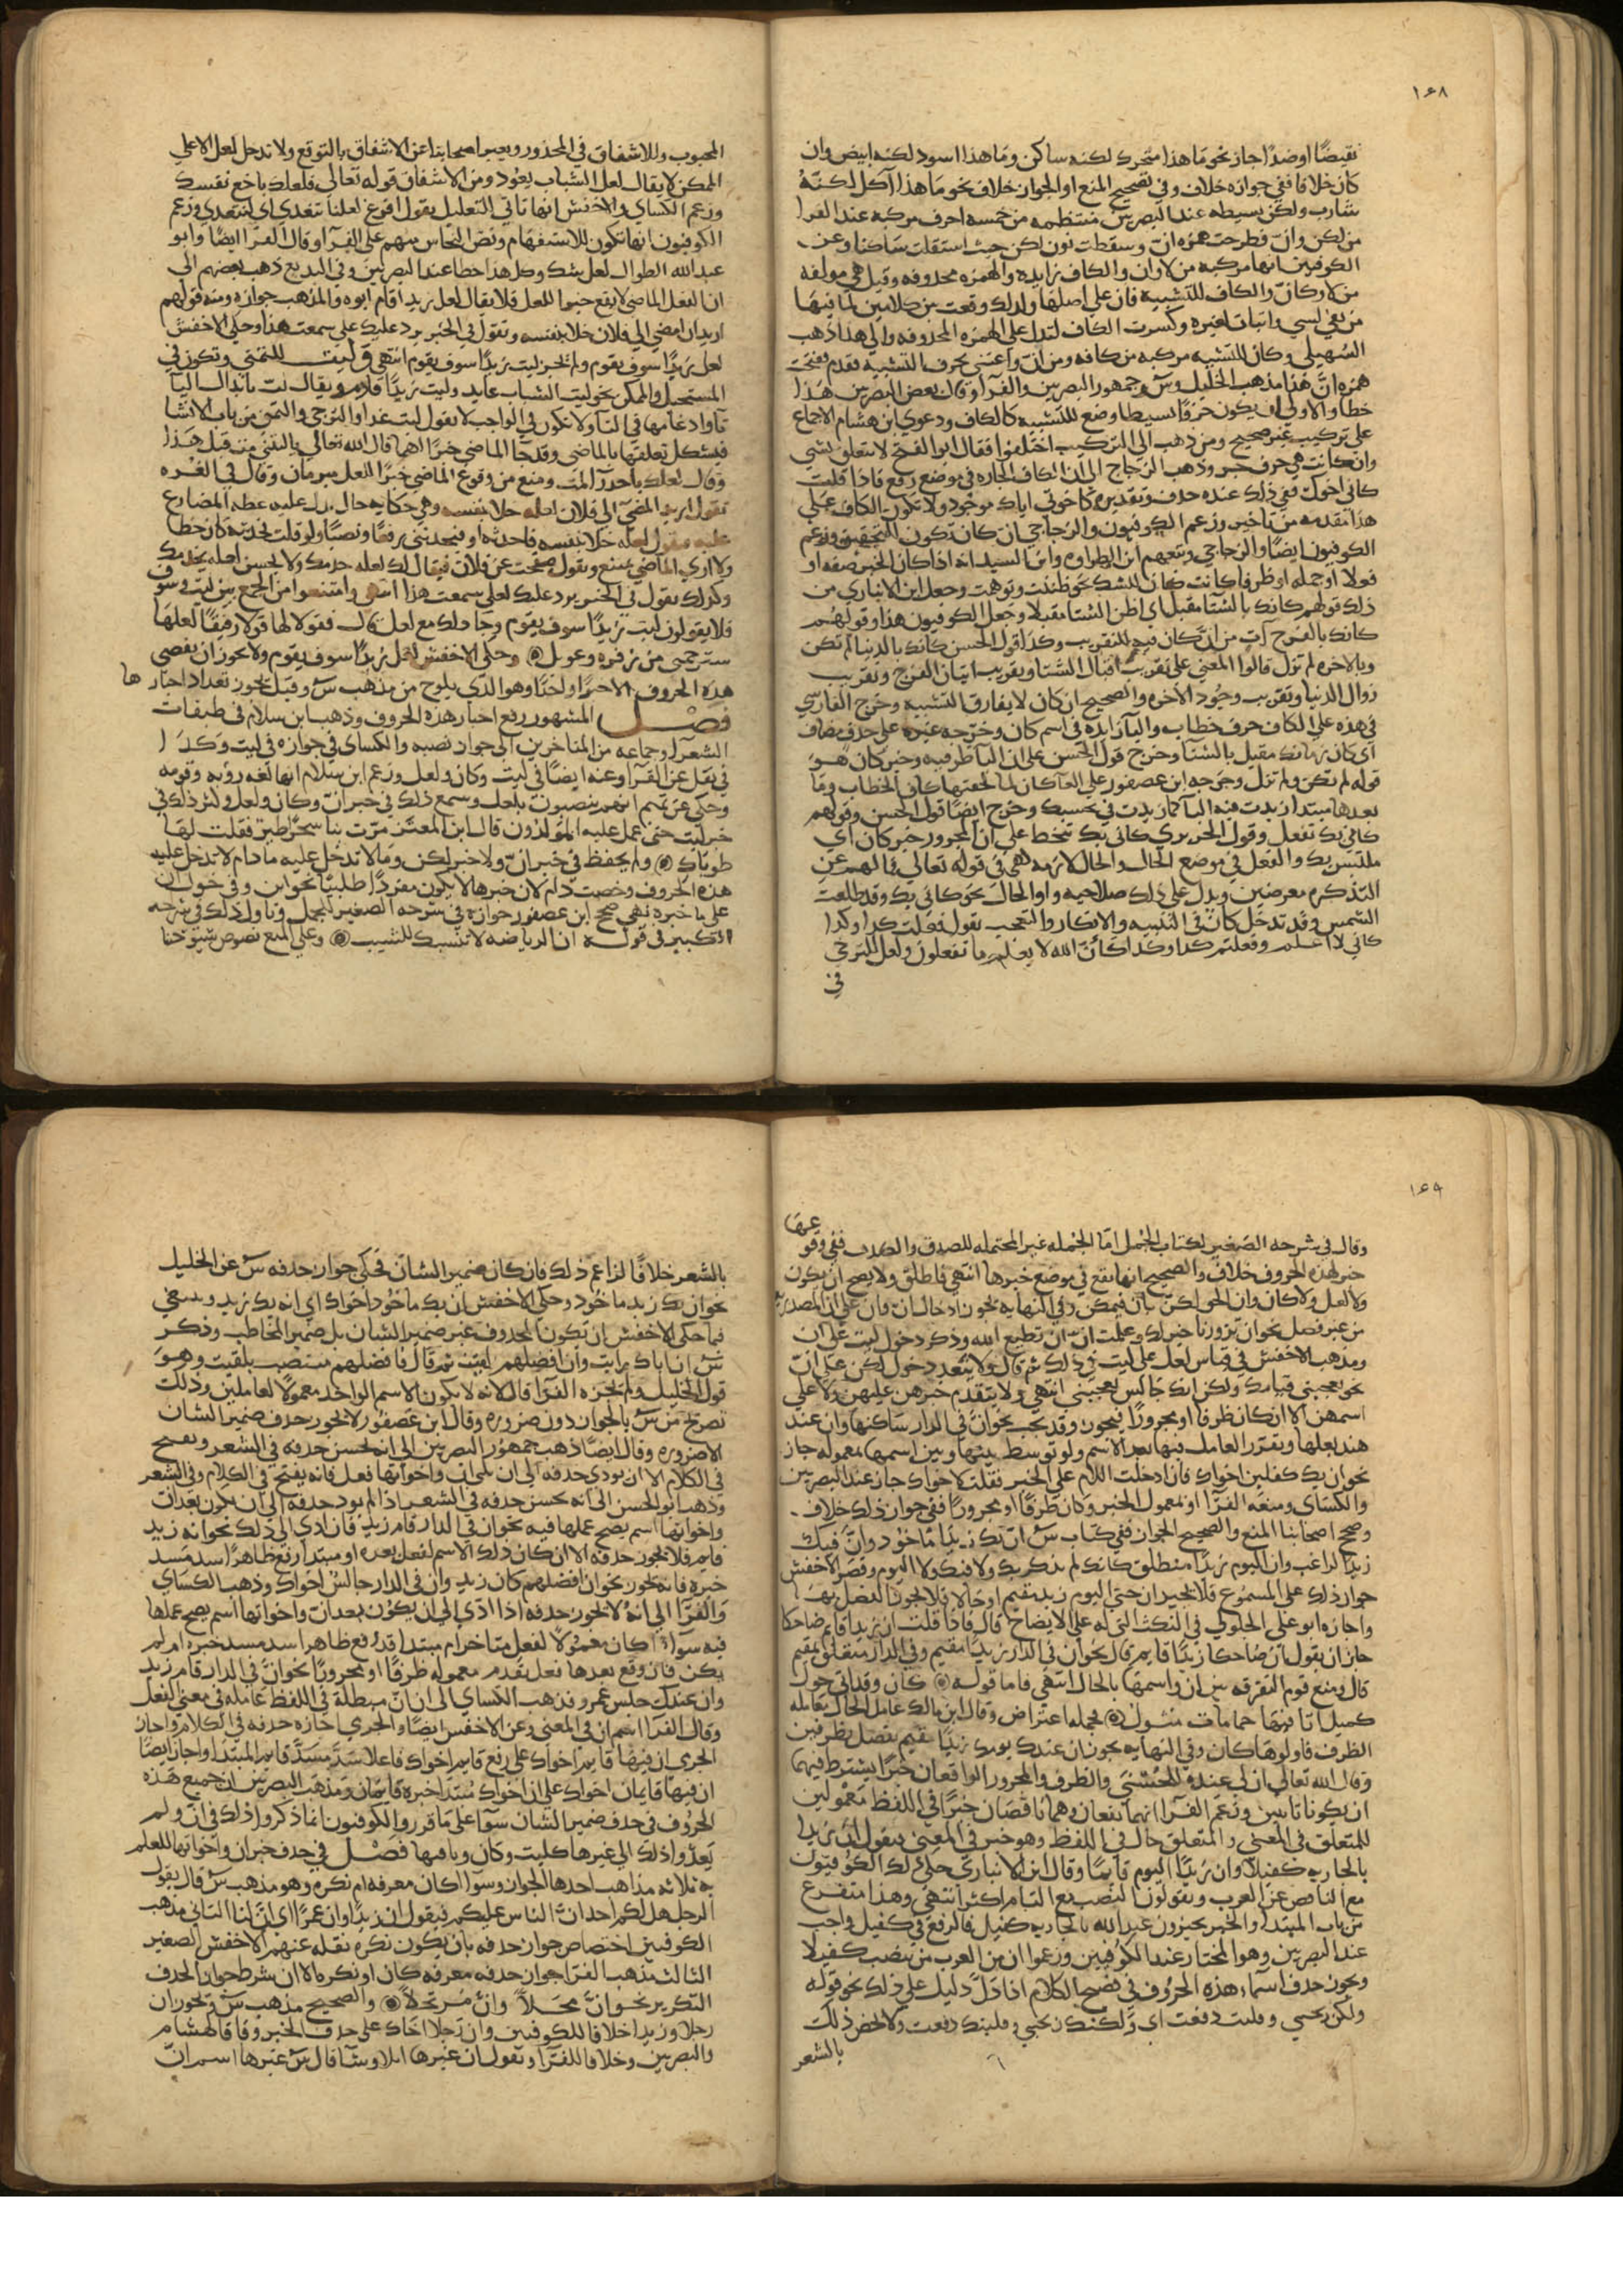 ١٤٨
نقيضًا او ضدًا جاز نحو ما هذا متحرك لكنه ساكن وما هذا اسود لكنه ابيض وان
كان خلافا ففي جوازه خلاف وفي تصحيح المنع او الجواز خلاف نحو ما هذا آكل لكنّهُ
شارب ولكن بسيطه عند البصريين منتظمه من خمسه احرف مركبه عند الفرا
من لكن وانّ فطرحت همزه انّ وسقطت نون لكن حيث استقلت ساكنا وعن
الكوفيين انها مركبه من لا وان والكاف زايده والهمزه محذوفه وقيل هي مولفه
من لا وكانّ والكاف للتشبيه فان على اصلها ولذلك وقعت بين كلامين لما فيها
من نفي لشي واثبات لغيره وكسرت الكاف لتدل على الهمزه المحذوفه والى هذا ذهب
السهيلي وكانّ للتشبيه مركبه من كافه ومن انّ واعتنى بحرف التشبيه فقدم ففتحت
همزه انّ هذا مذهب الخليل وس وجمهور البصريين والفرا وقال بعض البصريين هذا
خطا والاولى ان يكون حرفا بسيطا وضع للتشبيه كالكاف ودعوى ابن هشام الاجماع
على تركيب غير صحيح ومن ذهب الى التركيب اختلفوا فقال ابو الفتح لا تتعلق بشي
وان كانت هي حرف جر وذهب الزجاج الى ان الكاف الجاره في موضع رفع فاذا قلت
كاني اخوك ففي ذلك عنده حذف وتقديره كاخوتي اياك موجود ولا تكون الكاف على
هذا مقدمه من تاخير وزعم الكوفيون والزجاجي ان كان تكون للتحقيق وزعم
الكوفيون ايضًا والزجاجي وتبعهم ابن الطراوه وابن السيد انه اذا كان الخبر صفه او
فعلا او جمله او ظرفا كانت كان للشك نحو ظننت وتوهمت وجعل ابن الانباري من
ذلك قولهم كانك بالشتا مقبل اي اظن الشتا مقبلا وجعل الكوفيون هذا وقولهم
كانك بالفرج آت من ان كان فيه للتقريب وكذا قول الحسن كانك بالدنيا لم تكن
وبالاخره لم تزل قالوا المعنى على تقريب اقبال الشتا وتقريب اتيان الفرج وتقريب
زوال الدنيا وتقريب وجود الاخره والصحيح ان كان لا يفارق التشبيه وخرج الفارسي
في هذه على الكاف حرف خطاب والبا زايده في اسم كان وخرّجه غيره على حذف مضاف
اي كان زمانك مقبل بالشتا وخرج قول الحسن على ان البا ظرفيه وخبر كان هو
قوله لم تكن ولم تزل وخرجه ابن عصفور على الغا كان لما لحقتها كاف الخطاب وما
بعدها مبتدا زيدت فيه البا كما زيدت في بحسبك وخرج ايضًا قول الحسن وقولهم
كاني بك تفعل وقول الحريري كاني بك تنحط على ان المجرور خبر كان اي
ملتبس بك والفعل في موضع الحال والحال لازمه لهي في قوله تعالى فما لهم عن
التذكره معرضين ويدل على ذلك صلاحيه واو الحال نحو كاني بك وقد طلعت
الشمس وقد تدخل كان في التنبيه والانكار والتعجب تقول فعلت كذا وكذا
كاني لا اعلم وفعلتم كذا وكذا كانّ الله لا يعلم ما تفعلون ولعل للترجي
في
المحبوب وللاشفاق في المحذور ويعبر اصحابنا عن الاشفاق بالتوقع ولا تدخل لعل الا على
الممكن لا يقال لعل الشباب يعود ومن الاشفاق قوله تعالى فلعلك باخع نفسك
وزعم الكساي والاخفش انها تاتي للتعليل يقول افرغ لعلنا نتغدى اي لنتغدى وزعم
الكوفيون انها تكون للاستفهام ونص النحاس منهم على الفرا وقال الفرا ايضًا وابو
عبد الله الطوال لعل شك وكل هذا خطا عند البصريين وفي البديع ذهب بعضهم الى
ان الفعل الماضي لا يقع خبرا للعل فلا يقال لعل زيدا قام ابوه والمذهب جوازه ومنه قولهم
اريد ان امضي الى فلان خلا بنفسه وتقول في الخبر يرد عليك على سمعت هذا وحكى الاخفش
لعل زيدًا سوف يقوم ولم يجز ليت زيدًا سوف يقوم انتهى وليت للتمني وتكون في
المستحيل والممكن نحو ليت الشباب عايد وليت زيدًا قادم ويقال لت بابدال اليا
تا وادغامها في التا ولا تكون في الواجب لا يقول ليت غدا والترجي والتمني من باب الانشا
فيشكل تعلقها بالماضي وقد جا الماضي خبرًا لهما قال الله تعالى يا ليتني مت قبل هذا
هذه الحروف الاخيرًا اولختًا وهو الذي يلوح من مذهب س وقيل يجوز تعداد اخبارها
فصل المشهور رفع اخبار هذه الحروف وذهب ابن سلام في طبقات
الشعرا وجماعه من المتاخرين الى جواز نصبه والكساي في جوازه في ليت وكذا
في نقل عن الفرا وعنه ايضًا في ليت وكان ولعل وزعم ابن سلام انها لغه رؤبه وقومه
وحكى عن تميم انهم ينصبون بلعل وسمع ذلك في خبر ان وكان ولعل وكثر ذلك في
خبر ليت حتى عمل عليه المولدون قال ابن المعتز مرّت بنا سحرًا طير فقلت لها
طوباك ولم يحفظ في خبر انّ ولا خبر لكن وما لا تدخل عليه ما دام لا تدخل عليه
هذه الحروف وخصت دام لان خبرها لا يكون مفردًا طلبيًا نحو اين وفي دخول ان
على ما خبره نهي صحح ابن عصفور جوازه في شرحه الصغير للجمل وتاول ذلك في شرحه
الكبير في قوله ان الرياضه لا تنصبك للشيب وعلى المنع نصوص شيوخنا
١٤٩
وقال في شرحه الصغير لكتاب الجمل امّا الجمله غير المحتمله للصدق والكذب ففي وقوعها
خبر لهذه الحروف خلاف والصحيح انها تقع في موضع خبرها انتهى فاطلق ولا يصح ان يكون
من غير فصل نحو ان تزورنا خير لك وعملت انّ ان تطيع الله وذكر دخول ليت على ان
ومذهب الاخفش في قياس لعل على ليت في ذلك ثم قال ولا يبعد دخول لكن على انّ
نحو يعجبني قيامك ولكن انك جالس يعجبني انتهى ولا يتقدم خبرهن عليهن ولا على
اسمهن الا ان كان ظرفا او مجرورًا فيجوز وقد يجب نحو انّ في الدار ساكنها وان عند
هند بعلها ويقدّر العامل فيها بعد الاسم ولو توسط بينها وبين اسمها معموله جاز
نحو ان بك كفلين اخواك فان ادخلت اللام على الخبر فقلت لاخواك جاز عند البصريين
والكساي ومنعه الفرا او معمول الخبر وكان ظرفًا او مجرورًا ففي جواز ذلك خلاف
وصحح اصحابنا المنع والصحيح الجواز ففي كتاب س انّ بك زيدًا ماخوذ وانّ فيك
زيدًا لراغب وان اليوم زيدًا منطلق كانك لم يذكر بك ولا فيك ولا اليوم وقصر الاخفش
جواز ذلك على المسموع فلا يجيز ان حتى اليوم زيد مقيم او حالا فلا يجوز الفصل بها
واجازه ابو علي الجلولي في النكت التي له على الايضاح قال فاذا قلت ان زيدًا قايم ضاحكا
جاز ان يقول ان ضاحكا زيدًا قايم قال نحو ان في الدار زيدًا مقيم وفي الدار متعلق بمقيم
قال ومنع قوم التفرقه بين ان واسمها بالحال انتهى فاما قوله كان وقد اتى حول
كميل اثافيها حمامات مثول فجمله اعتراض وقال ابن مالك عامل الحال معامله
الظرف فاولوها كان وفي النهايه يجوز ان عندك يومك زيدًا مقيم بفصل بظرفين
وقال الله تعالى ان لي عنده للحسنى والظرف والمجرور الواقعان خبرًا يشترط فيهما
ان يكونا تامين وزعم الفرا انهما يقعان وهما ناقصان خبرًا في اللفظ معمولين
للمتعلق في المعنى والمتعلق حال في اللفظ وهو خبر في المعنى فتقول انّ زيدا
بالجاريه كفيلا وان زيدًا اليوم قايمًا وقال ابن الانباري حكى ذلك الكوفيون
مع الناقص عن العرب ويقولون النصب مع التام اكثر انتهى وهذا متفرع
من باب المبتدا والخبر يجيزون عبد الله بالجاريه كفيل فالرفع في كفيل واجب
عند البصريين وهو المختار عند الكوفيين وزعموا ان من العرب من ينصب كفيلا
ويجوز حذف اسماء هذه الحروف في فصيح الكلام اذا دلّ دليل على ذلك نحو قوله
ولكن زنجي وفليت دفعت اي ولكنك زنجي وفليتك دفعت ولا يخص ذلك
بالشعر
بالشعر خلافًا لزاعم ذلك فان كان ضمير الشان فحكى جواز حذفه س عن الخليل
نحو ان بك زيد ماخوذ وحكى الاخفش ان بك ماخوذ اخواك اي انه بك زيد وينبغي
فيما حكى الاخفش ان تكون المحذوف غير ضمير الشان بل ضمير المخاطب وذكر
س ان اباك رايت وان افضلهم لقيت ثم قال فافضلهم منتصب بلقيت وهو
قول الخليل ولم يجزه الفرا قال لانه لا يكون الاسم الواحد معمولا لعاملين وذلك
تصريح من س بالجواز دون ضروره وقال ابن عصفور لا يجوز حذف ضمير الشان
الا ضروره وقال ايضًا ذهب جمهور البصريين الى انه يحسن حذفه في الشعر ويقبح
في الكلام الا ان يودي حذفه الى ان تلي ان واخواتها فعل فانه يقبح في الكلام وفي الشعر
وذهب ابو الحسن الى انه يحسن حذفه في الشعر اذا لم يود حذفه الى ان يكون بعد ان
واخواتها اسم يصح عملها فيه نحو ان في الدار قام زيد فان ادى الى ذلك نحو انه زيد
قايم فلا يجوز حذفه الا ان كان ذلك الاسم لفعل بعده او مبتدا رفع ظاهرًا سد مسد
خبره فانه يجوز نحو ان افضلهم كان زيد وان في الدار جالس اخواك وذهب الكساي
والفرّا الى انهُ لا يجوز حذفه اذا ادى الى ان يكون بعد ان واخواتها اسم يصح عملها
فيه سوا كان معمولا لفعل متاخر ام مبتدا قد رفع ظاهرا سد مسد خبره ام لم
يكن فان وقع بعدها فعل تقدم معموله ظرفًا او مجرورًا نحو انّ في الدار قام زيد
وان عندك جلس عمرو فذهب الكساي الى ان انّ مبطلة في اللفظ عامله في معنى الفعل
وقال الفرا اسم ان في المعنى وعن الاخفش ايضًا والجرمي اجازه حذفه في الكلام واجاز
الجرمي ان فيها قايم اخواك على رفع قايم اخواك فاعلا سَدّ مسدّ قايم المبتدا واجاز ايضًا
ان فيها قايمان اخواك على ان اخواك مبتدا خبره قايمان ومذهب البصريين ان جميع هذه
الحروف في حذف ضمير الشان سوآ على ما قرر والكوفيون انما ذكروا ذلك في انّ ولم
يَعدّوا ذلك الى غيرها كليت وكان وباقيها فصل في حذف خبر ان واخواتها للعلم
به ثلاثه مذاهب احدها الجواز وسوا كان معرفه ام نكره وهو مذهب س قال يقول
الرجل هل لكم احد انّ الناس عليكم فيقول ان زيدًا وان عمرًا اي انّ لنا الثاني مذهب
الكوفيين اختصاص جواز حذفه بان يكون نكره نقله عنهم الاخفش الصغير
الثالث مذهب الفرا جواز حذفه معرفه كان او نكره الا ان شرط جواز الحذف
التكرير نحو انّ محلّاً وانّ مُرتحلاً والصحيح مذهب س فيجوز ان
رجلا وزيدا خلافا للكوفيين وان رجلا اخاك على حذف الخبر وفاقا لهشام
والبصريين وخلافا للفرا وتقول ان غيرها ابلا وشا قال س غيرها اسم انّ